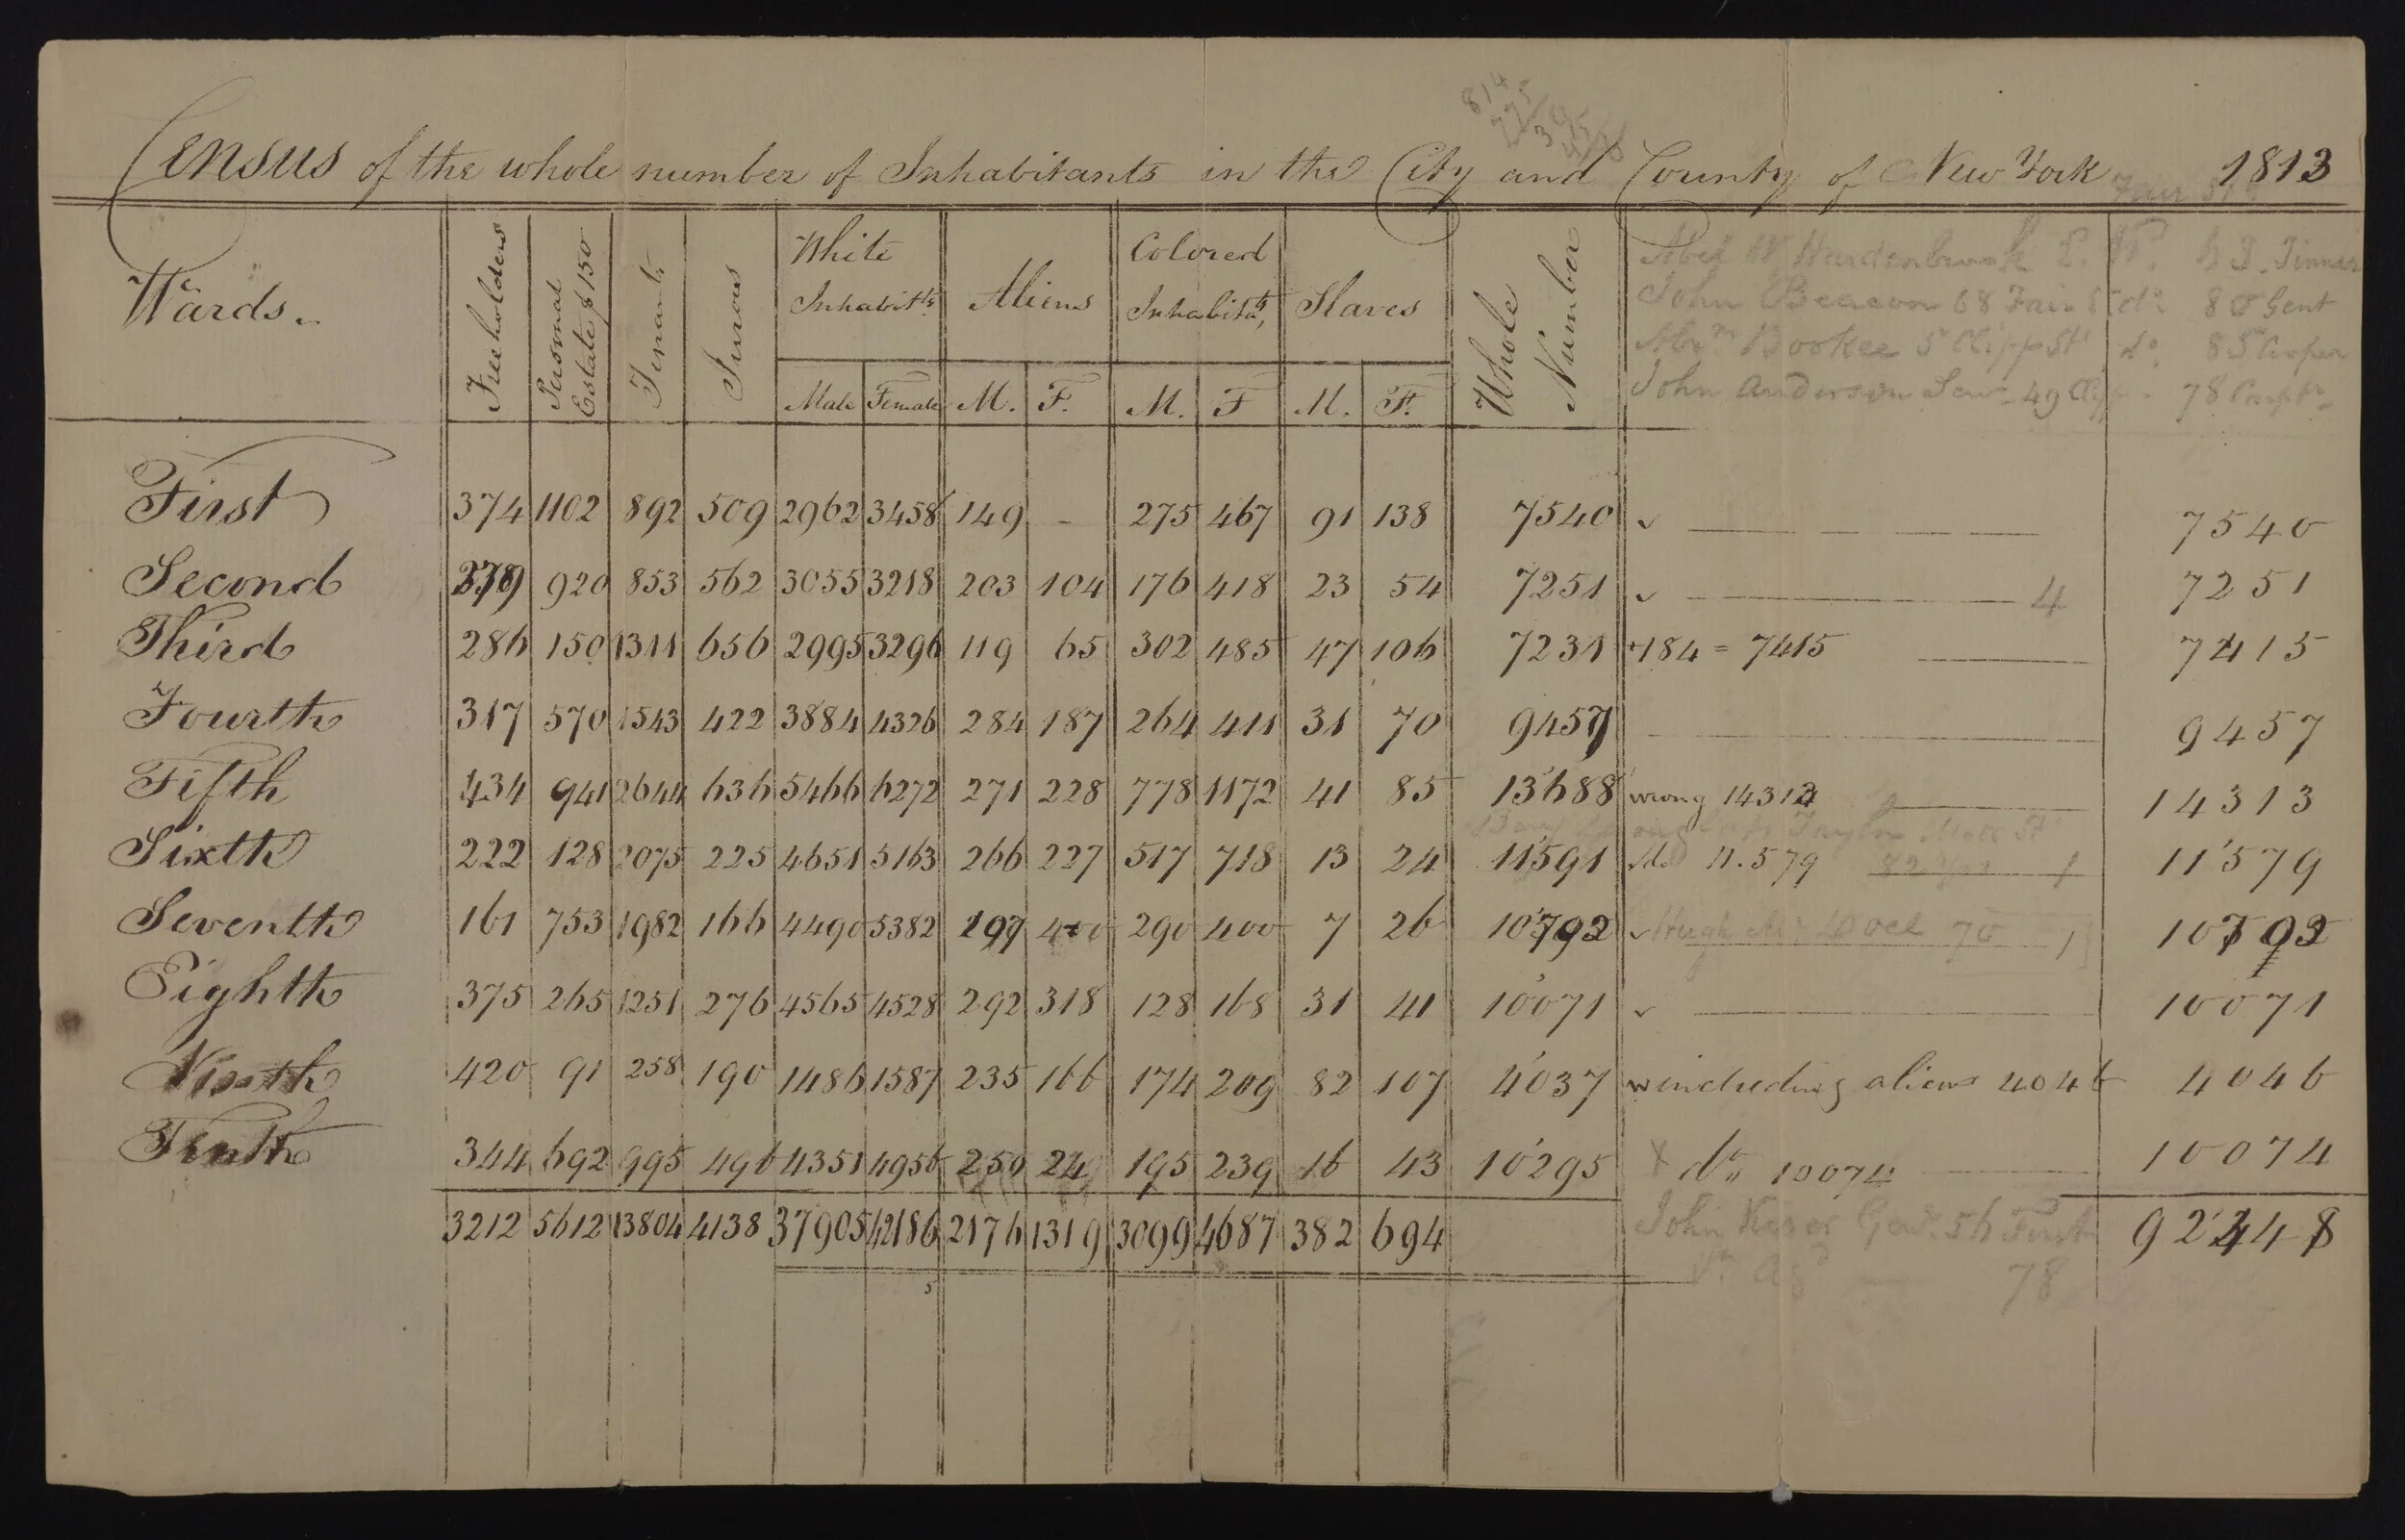 Census of the whole number of Inhabitants in the City and County of New York 1813
Wards. Freeholders Personal Estate $150 Tenants Jurors White Inhabitts Aliens Colored Inhabitts, Slaves Whole Number
Male Female M. F. M. F M. F.
John Beacon 68 Fair St do 80 Gent
Booker 5 Cliff St do 85 Cooper
John Anderson Senr 49 Cliff 78 Carptr
First 374 1102 892 509 2962 3458 149 - 275 467 91 138 7540 ✓ 7540
Second 279 920 853 562 3055 3218 203 104 176 418 23 54 7251 ✓ 4 7251
Third 286 150 1311 656 2995 3296 119 65 302 485 47 106 7231 +184 = 7415 7415
Fourth 317 570 1543 422 3884 4326 284 187 264 411 31 70 9457 9457
Fifth 434 941 2644 636 5466 6272 271 228 778 1172 41 85 13688 wrong 14313 14313
Sixth 222 128 2075 225 4651 5163 266 227 517 718 13 24 11591 do 11.579 1 11579
Seventh 161 753 1982 166 4490 5382 197 400 290 400 7 26 10792 ✓ Hugh 70 1 10792
Eighth 375 265 1251 276 4565 4528 292 318 128 168 31 41 10071 ✓ 10071
Ninth 420 91 258 190 1486 1587 235 166 174 209 82 107 4037 including aliens 4046 4046
Tenth 344 692 995 496 4351 4956 250 24 195 239 16 43 10295 x do 10074 10074
3212 5612 13804 4138 37905 42186 2176 1319 3099 4687 382 694 92448
John 56 First
78